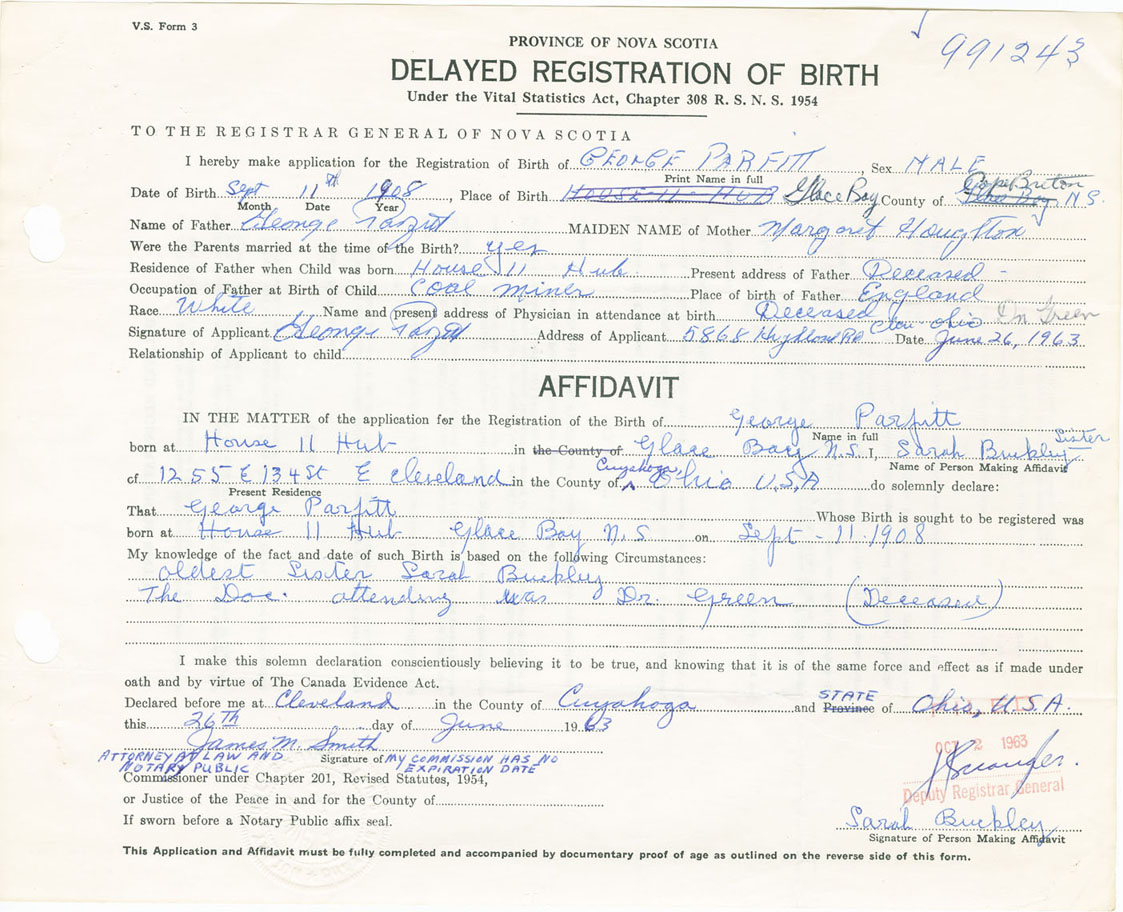 V.S. Form 3
991243
PROVINCE OF NOVA SCOTIA
DELAYED REGISTRATION OF BIRTH
Under the Vital Statistics Act, Chapter 308 R. S. N. S. 1954
TO THE REGISTRAR GENERAL OF NOVA SCOTIA
I hereby make application for the Registration of Birth of GEORGE PARFITT Sex MALE
Print Name in full
Date of Birth Sept 11th 1908, Place of Birth House 11 HUB Glace Bay County of Cape Breton Glace Bay N.S.
Month Date Year
Name of Father George Parfitt MAIDEN NAME of Mother Margaret Houghton
Were the Parents married at the time of the Birth? yes
Residence of Father when Child was born House 11 Hub Present address of Father Deceased -
Occupation of Father at Birth of Child Coal miner Place of birth of Father England
Race White Name and present address of Physician in attendance at birth Deceased Dr Green
Signature of Applicant George Parfitt Address of Applicant 5868 Highland Rd Clev. Ohio Date June 26, 1963
Relationship of Applicant to child
AFFIDAVIT
IN THE MATTER of the application for the Registration of the Birth of George Parfitt
Name in full
born at House 11 Hub in the County of Glace Bay N.S. I, Sarah Buckley Sister
Name of Person Making Affidavit
of 1255 E 134 St E Cleveland in the County of Cuyahoga, Ohio U.S.A do solemnly declare:
Present Residence
That George Parfitt Whose Birth is sought to be registered was
born at House 11 Hub Glace Bay N.S on Sept - 11 - 1908
My knowledge of the fact and date of such Birth is based on the following Circumstances:
oldest Sister Sarah Buckley
The Doc. attending was Dr. Green (Deceased)
I make this solemn declaration conscientiously believing it to be true, and knowing that it is of the same force and effect as if made under
oath and by virtue of The Canada Evidence Act.
Declared before me at Cleveland in the County of Cuyahoga and Province STATE of Ohio, U.S.A.
this 26TH day of June 1963
James M. Smith
ATTORNEY AT LAW AND NOTARY PUBLIC Signature of MY COMMISSION HAS NO EXPIRATION DATE
Commissioner under Chapter 201, Revised Statutes, 1954,
or Justice of the Peace in and for the County of
If sworn before a Notary Public affix seal.
OCT 2 1963
Deputy Registrar General
Sarah Buckley
Signature of Person Making Affidavit
This Application and Affidavit must be fully completed and accompanied by documentary proof of age as outlined on the reverse side of this form.